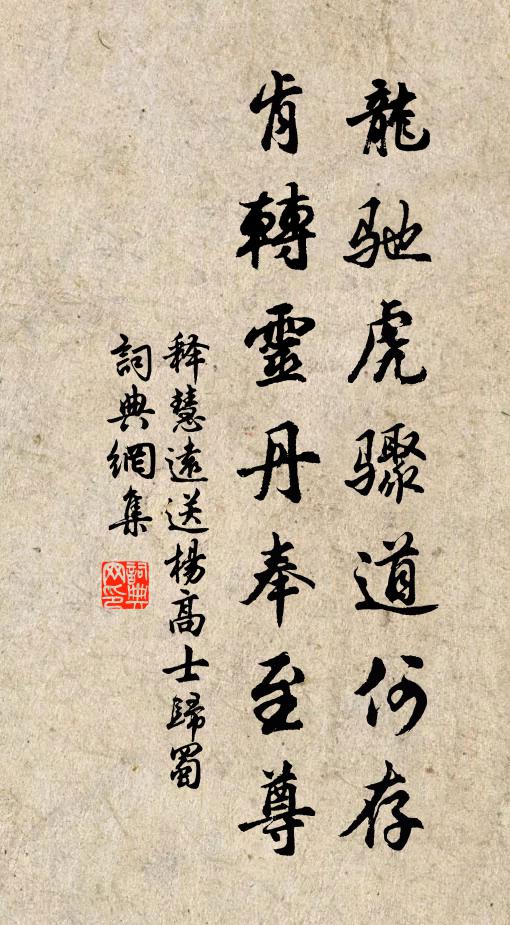 龍驰虎骤道何存
肯轉靈丹奉至尊
释慧遠送楊高士歸蜀
詞典網集
詞典网印